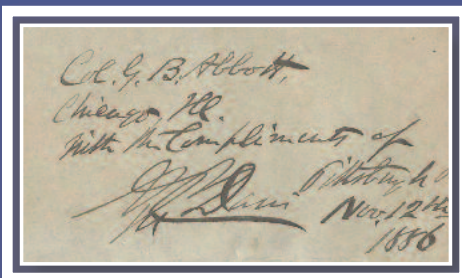 Col. G. B. Abbott,
Chicago, Ill.
With the Compliments of
Davis Pittsburgh
Nov. 12th
1886